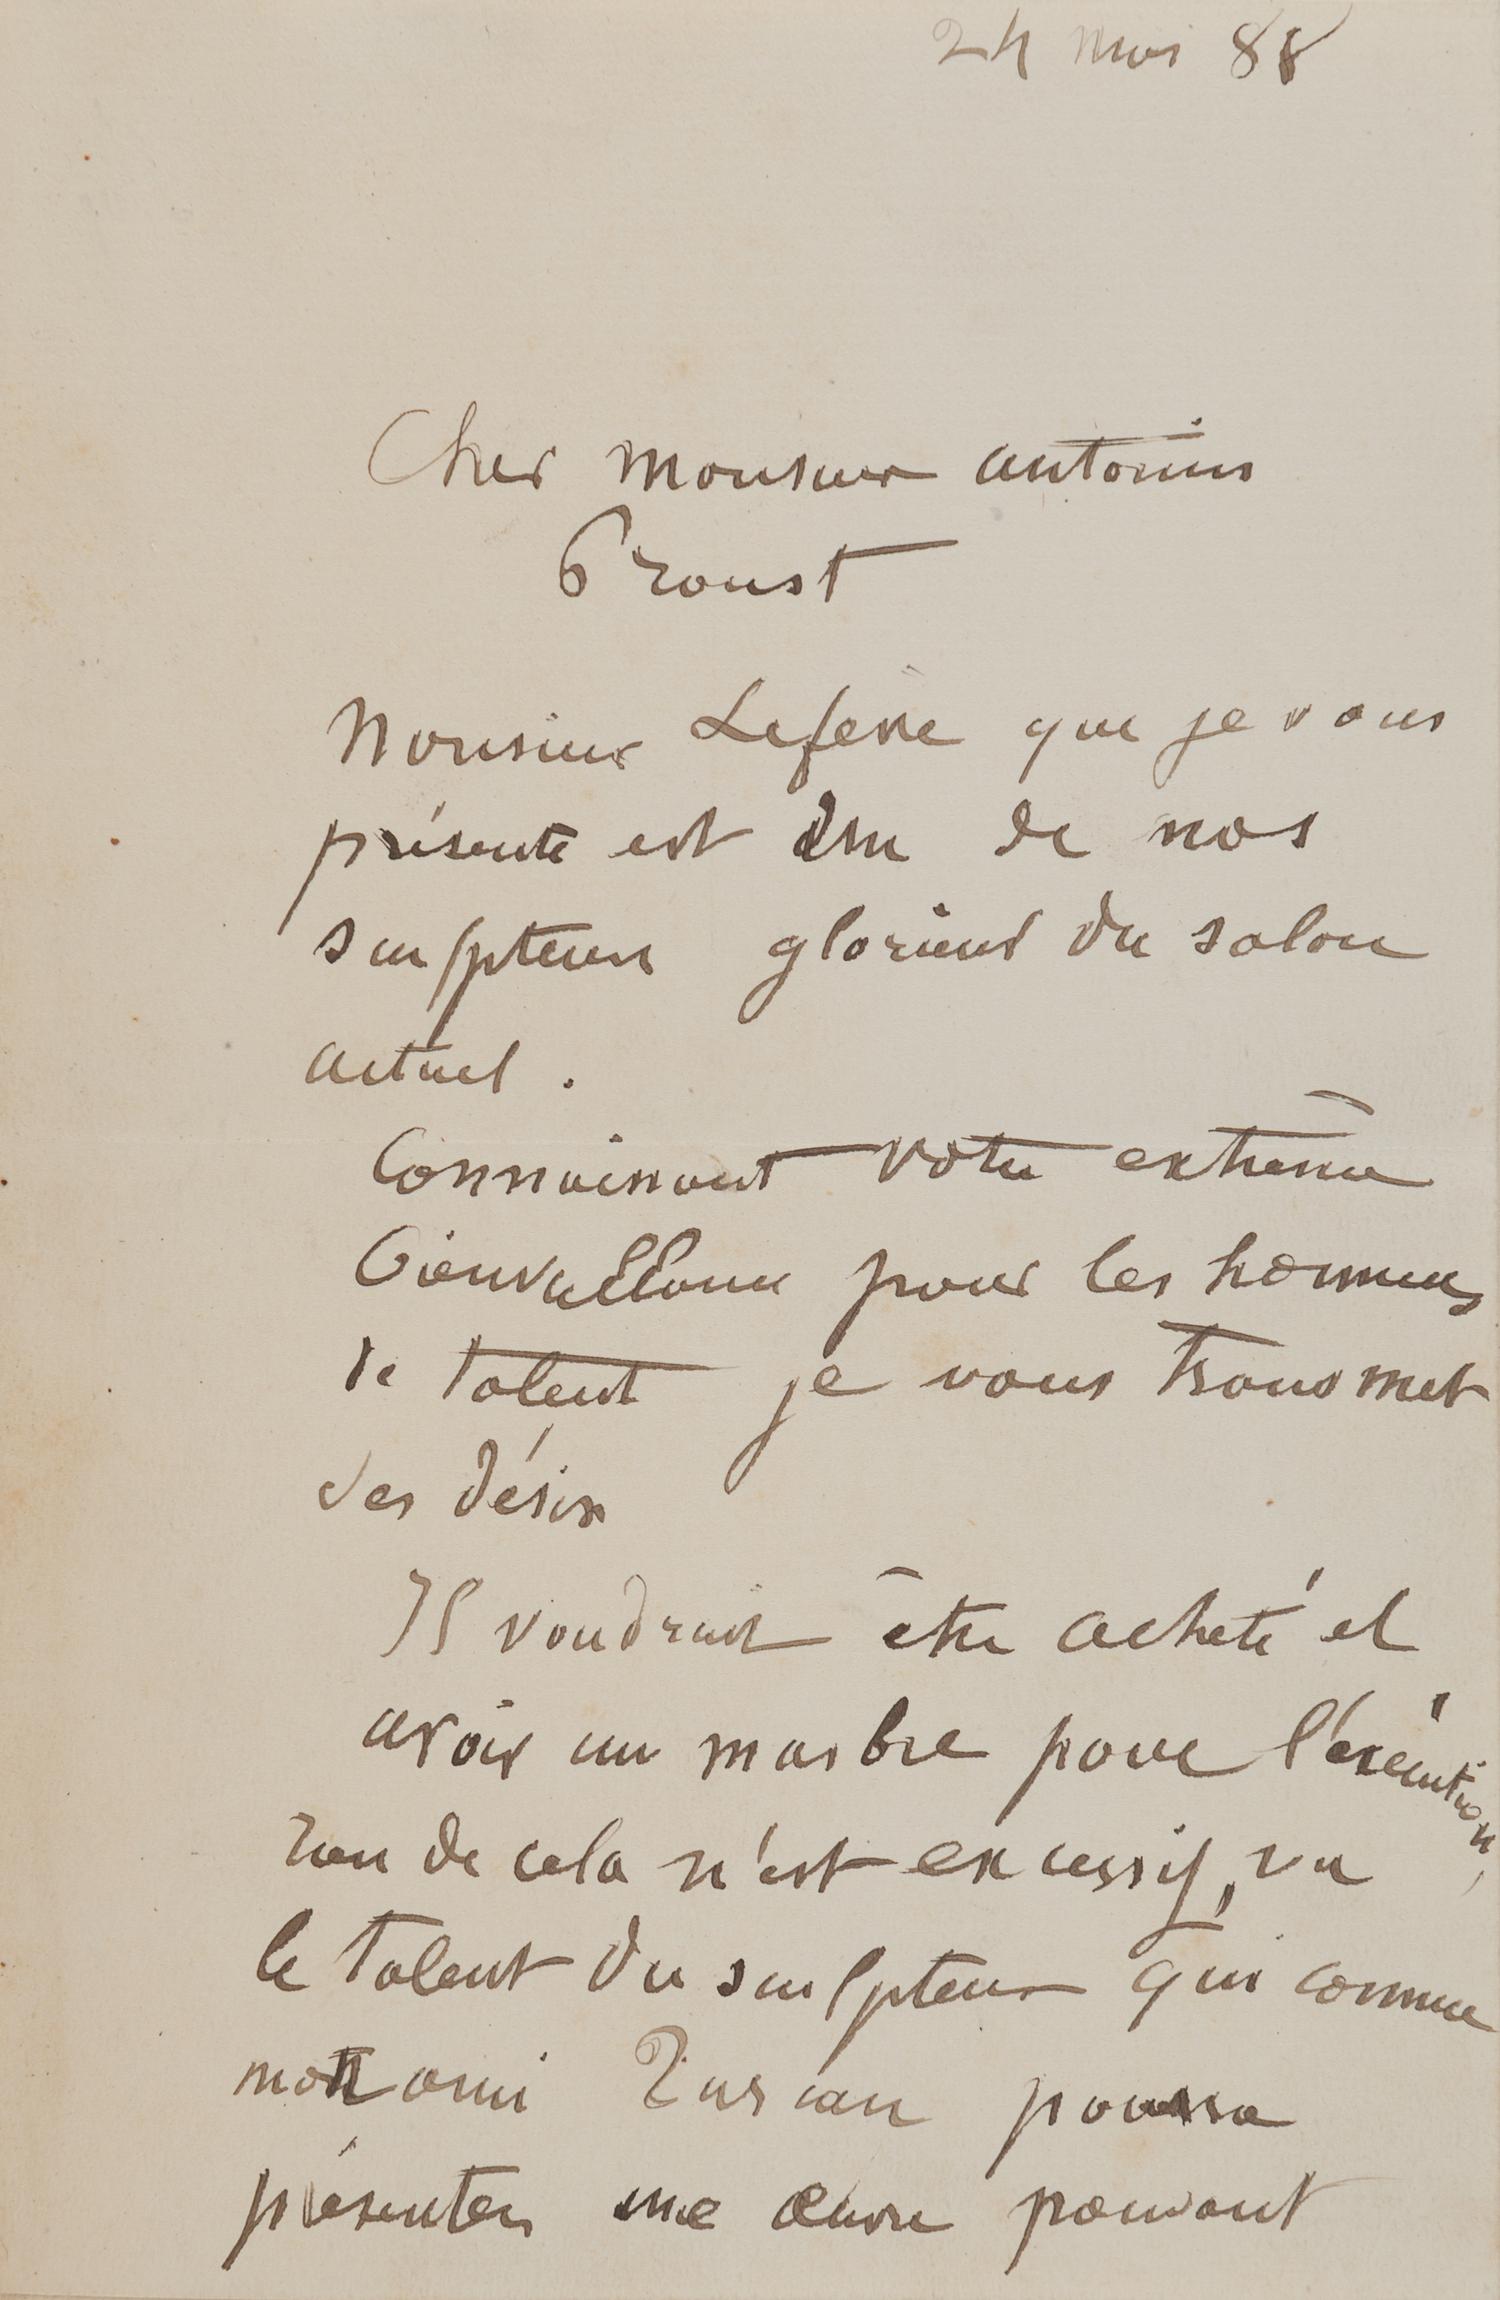 24 mai 88
Cher Monsieur Antonin
Proust
Monsieur Lefevre que je vous
présente est un de nos
sculpteurs glorieux du salon
actuel.
Connaissant votre extrême
bienveillance pour les hommes
de talent je vous transmet
ses désirs
Il voudrait être acheté et
avoir un marbre pour l'exécution,
rien de cela n'est excessif, vu
le talent du sculpteur qui comme
mon ami Turcan pourra
présenter une œuvre pouvant